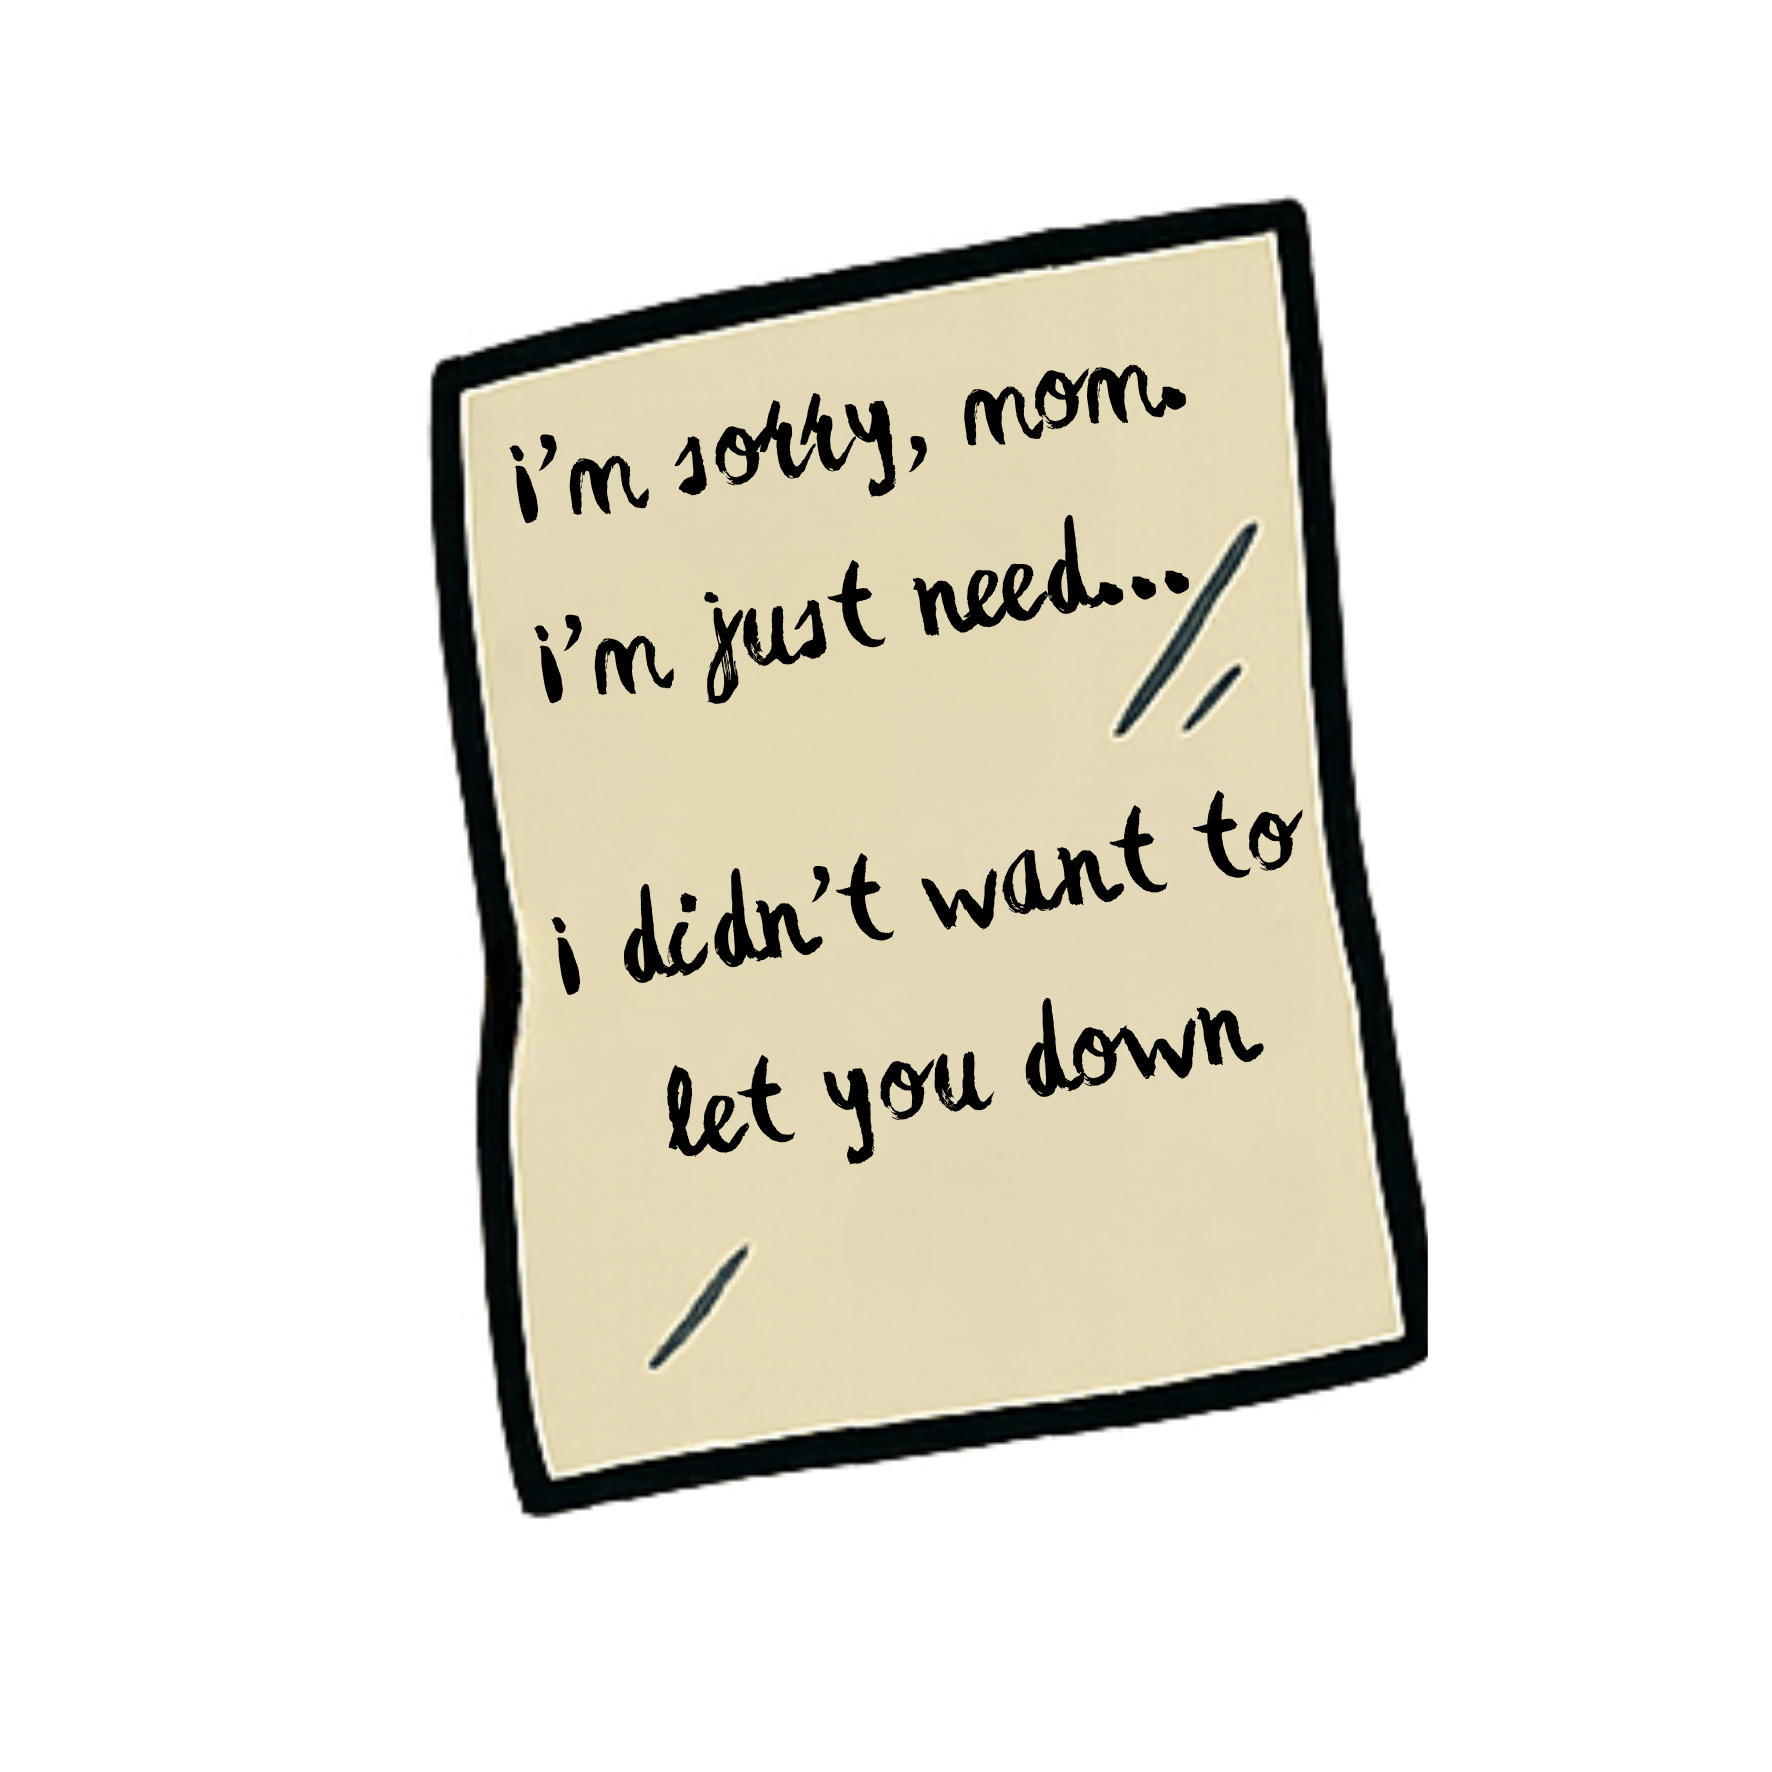 i'm sorry, mom.
i'm just need...
i didn't want to
let you down